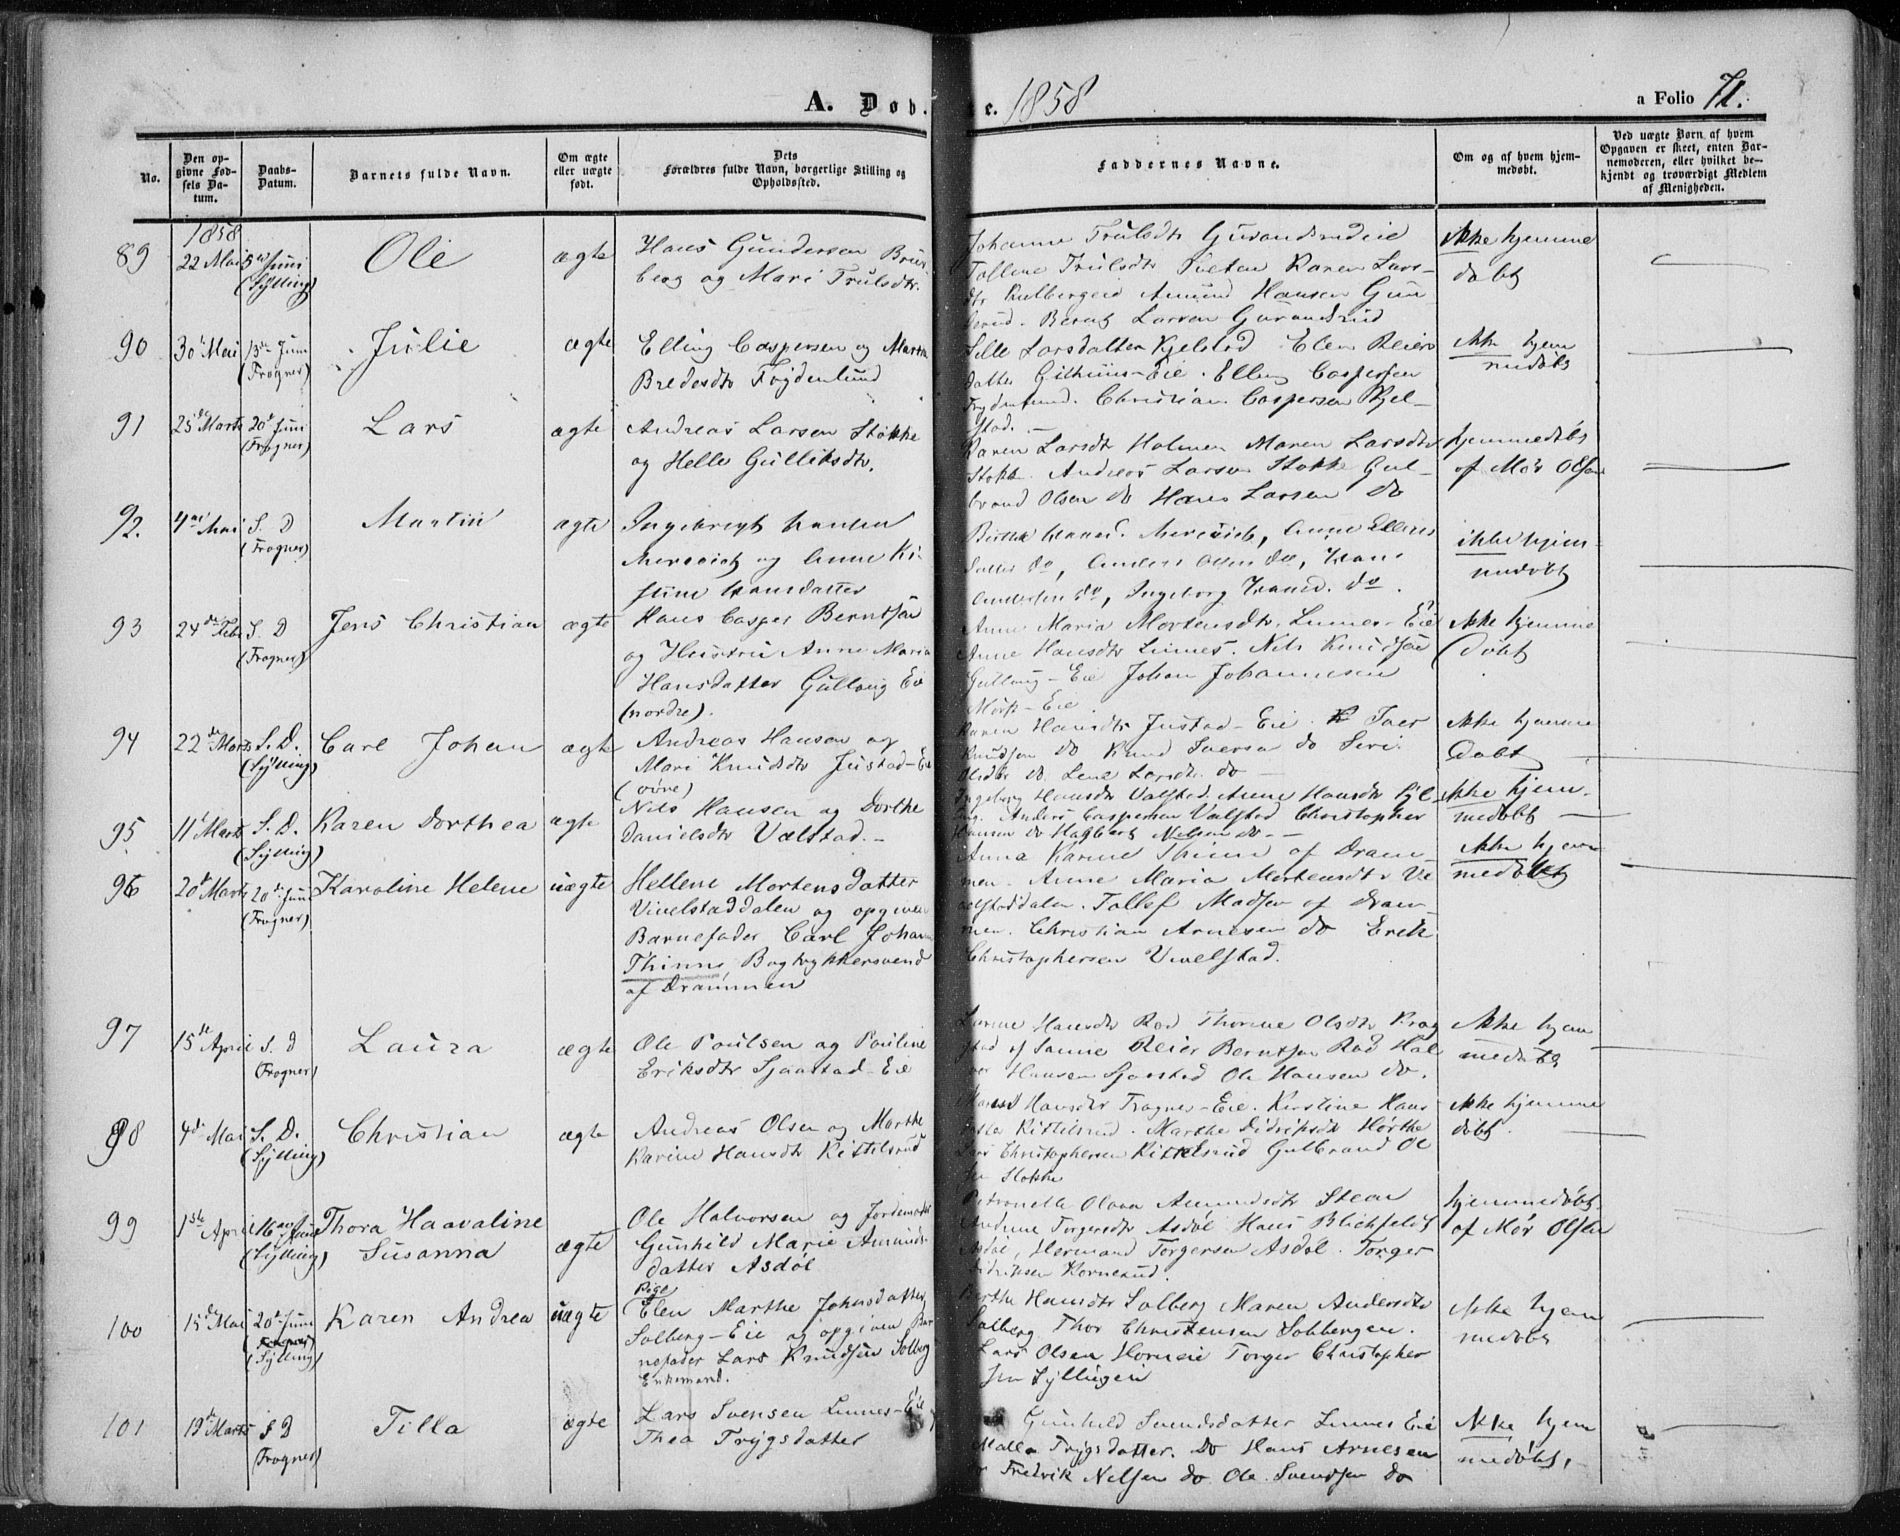 A. Døb. e. 1858 a Folio 71.
No.
Den opgivne Fødsels Datum.
Daabs-Datum.
Barnets fulde Navn.
Om ægte eller uægte født.
Dets Forældres fulde Navn, borgerlige Stilling og Opholdssted.
Faddernes Navne.
Om og af hvem hjemmedøbt.
Ved uægte Børn af hvem Opgaven er skeet, enten Barnemoderen, eller hvilket bekjendt og troværdigt Medlem af Menigheden.
1858
89 22 Mai 5te Juni (Sylling) Ole ægte
Hans Gundersen
berg og Mari Trulsdtr.
Johanne Trulsdtr
Tolline Trulsdtr Karen Lars-
dtr Amund Hansen Gun
derud. Bernt Larsen
Ikke hjemme
døbt
90 30te Mai 13de Juni (Frogner) Julie ægte
Elling Caspersen og Marthe
Bredesdtr Frydenlund
Sille Larsdatter Kjelstad. Elen Reiers
datter Githuus-Eie. Elling Caspersen
Frydenlund. Christian Caspersen Kjel-
stad.
Ikke hjem
medøbt
91 25de Marts 20de Juni (Frogner) Lars ægte
Andreas Larsen Stokke
og Helle Gulliksdtr.
Karen Larsdtr Holmen Maren Larsdtr
Stokke. Andreas Larsen Stokke Gul-
brand Olsen do Hans Larsen do
hjemmedøbt
af Mor Olsen
92. 4de Mai S. D (Frogner) Martin ægte
Ingebregt Hansen
og Anne Ki-
stine Hansdatter
Berthe Hansd. Anne Ellens
datter do, Anders Olsen do, Hans
Andersen do, Ingeborg Hansd. do.
ikke hjem-
medøbt
93 24de Febr S. D (Frogner) Jens Christian ægte
Hans Casper Berntsen
og Hustru Anne Maria
Hansdatter Gullaug Eie
(nordre).
Anne Maria Mortensdtr. Linnes-Eie
Anne Hansdtr Linnes. Nils Knudsen
Gullaug-Eie Johan Johannesen
Mørk-Eie
Ikke hjemme
døbt
94 22de Marts S. D. (Sylling) Carl Johan ægte
Andreas Hansen og
Mari Knudsdtr Justad-Eie
(øvre)
Karen Hansdtr Justad-Eie. Iver
Knudsen do Knud Iversen do Siri
Olsdtr do Lene Larsdtr do
Ikke hjemme
døbt
95 11te Marts S. D. (Sylling) Karen Dorthea ægte
Nils Hansen og Dorthe
Danielsdtr Valstad.
Ingeborg Hansdtr Valstad. Anne Hansdtr
Anders Caspersen Valstad Christopher
Hansen do Hagbart Nielsen do
Ikke hjem-
medøbt
96 20de Marts 20de Juni (Frogner) Karoline Helene uægte
Hellene Mortensdatter
Vivelstaddalen og opgiven
Barnefader Carl Johan
Thinne, Bogtrykkersvend
af Drammen
Anna Karine Thinne af Dram-
men. Anne Maria Mortensdtr Vi
velstaddalen. Tollef Madsen af Dram-
men. Christian Arnesen do Erik
Christophersen Vivelstad.
Ikke hjem
medøbt
97 15de April S. D (Frogner) Laura ægte
Ole Poulsen og Pauline
Eriksdtr Sjaastad-Eie
Hansdtr Rød Thorine Olsdtr Krog
stad af Sanne Reier Berntsen Rød Hal
vor Hansen Sjaastad Ole Hansen do.
Ikke hjem
medøbt
98 4de Mai S. D. (Sylling) Christian ægte
Andreas Olsen og Marthe
Karine Hansdtr Kittilsrud
Maren Hansdtr Frogner-Eie. Kirstine Hans
datter Kittilsrud. Marthe Didriksdtr Hørthe
Lars Christophersen Kittilsrud Gulbrand Ol
sen Stokke
Ikke hjemme
døbt.
99 1ste April 16de Juni (Sylling) Thora Haavaline
Susanna ægte
Ole Halvorsen og Jordemoder
Gunhild Marie Amunds-
datter Asdøl
Petronella Olava Amundsdtr Steen
Andrine Torgersdtr Asdøl Hans Blichfeldt
Asdøl, Hermand Torgersen Asdøl. Torger
Didriksen Kornerud.
hjemmedøbt
af Mor Olsen
100 15de Mai 20de Juni (Sylling) Karen Andrea uægte
Pige
Elen Marthe Johnsdatter,
Solberg-Eie og opgiven Bar
nefader Lars Knudsen Solberg
Enkemand.
Berthe Hansdtr Solberg Maren Andersdtr
Solberg Thor Christensen Solbergeie.
Lars Olsen Horneie Torger Christopher
sen Syllingeie
Ikke hjem
medøbt
101 19de Marts S D (Frogner) Tilla ægte
Lars Svensen Linnes-Eie
Thea Trygsdatter
Gunhild Svendsdatter Linnes Eie
Malla Trygsdatter. do Hans Arnesen
do Fredrik Nelsen do Ole Svendsen do
Ikke hjem
medøbt,